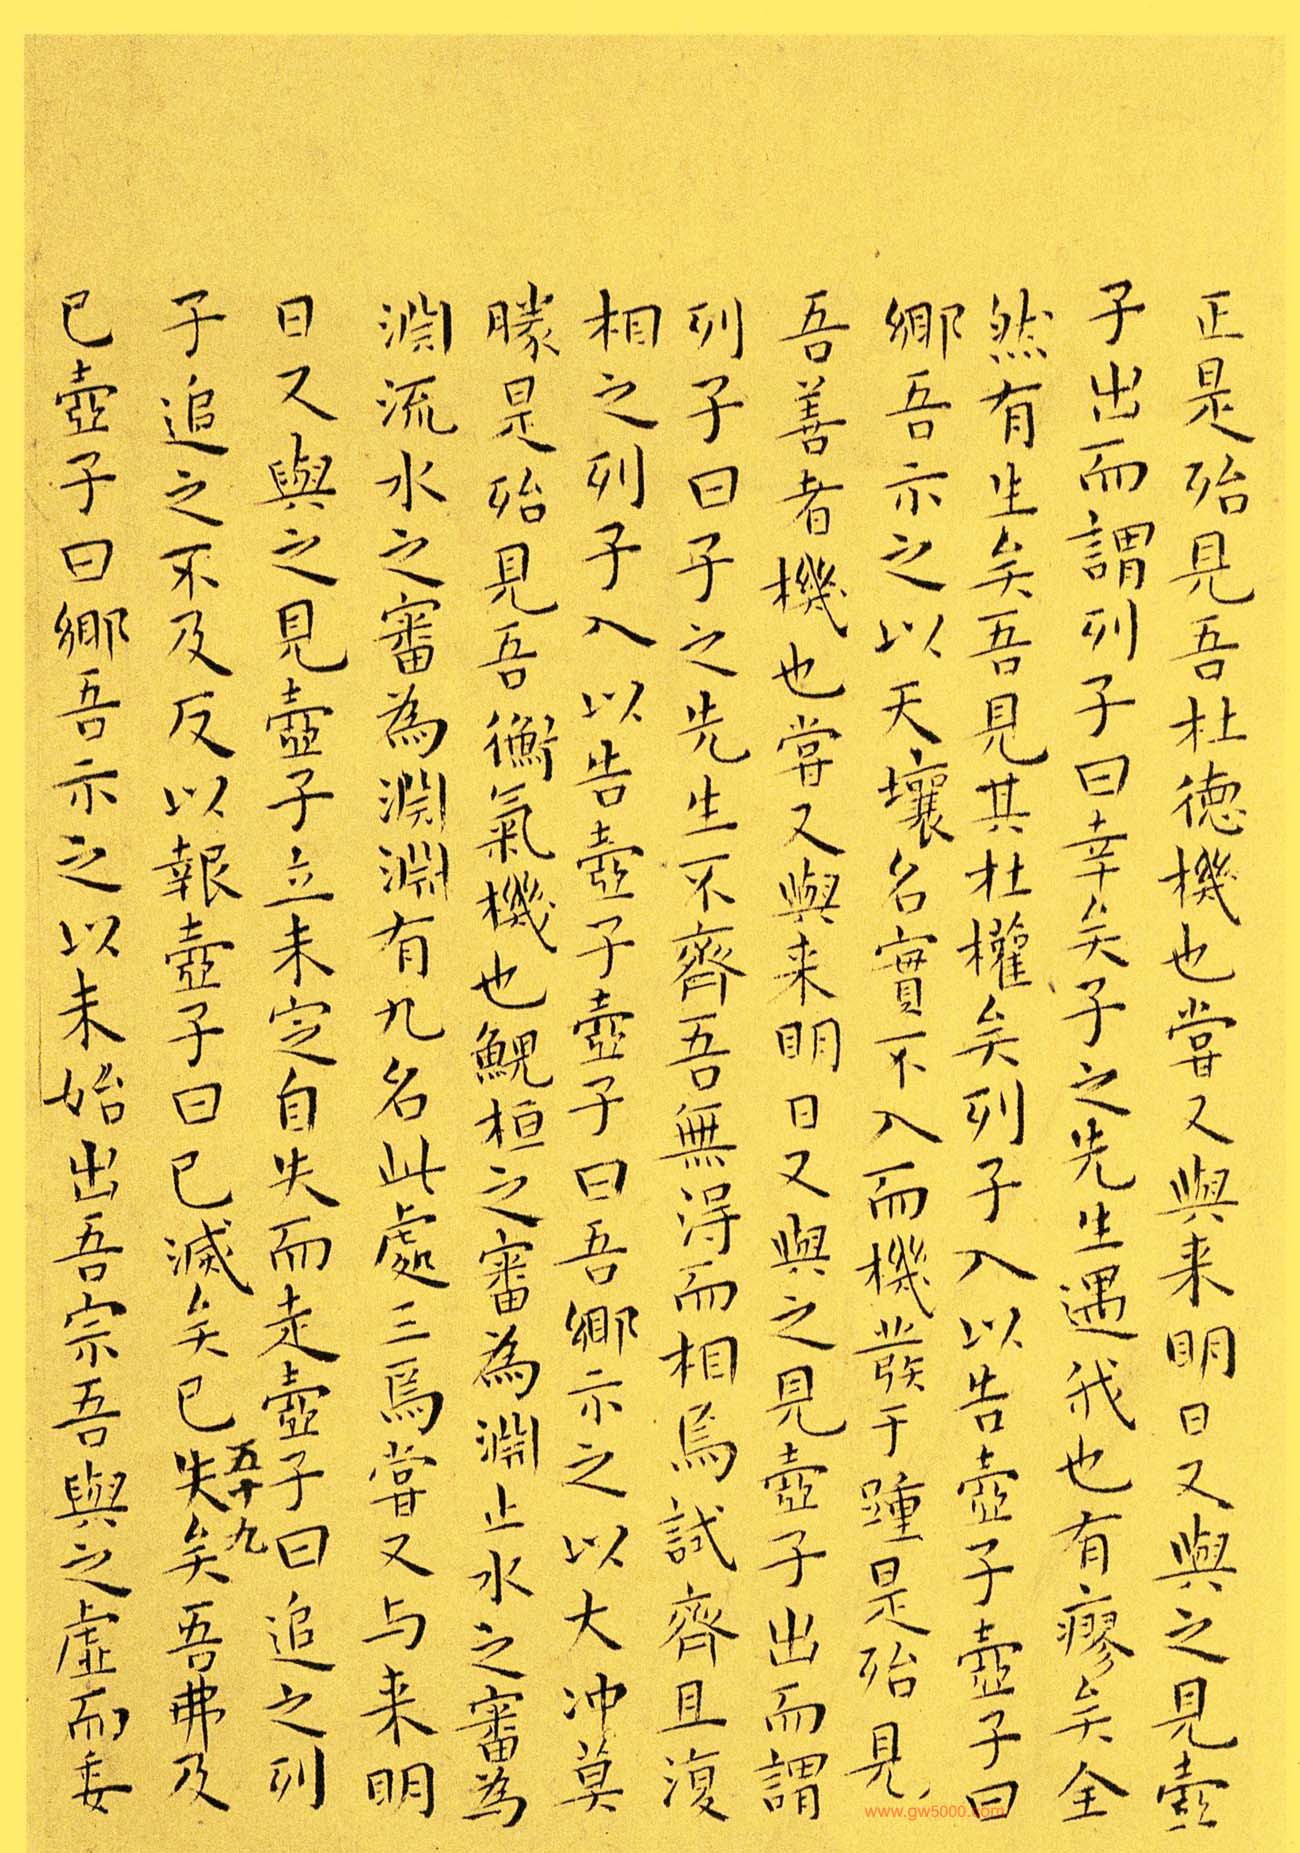 正是殆見吾杜德機也嘗又與来明日又與之見壺
子出而謂列子曰幸矣子之先生遇我也有瘳矣全
然有生矣吾見其杜權矣列子入以告壺子壺子曰
鄉吾示之以天壤名實不入而機發于踵是殆見
吾善者機也嘗又與来明日又與之見壺子出而謂
列子曰子之先生不齊吾無淂而相焉試齊且復
相之列子入以告壺子壺子曰吾鄉示之以大冲莫
朕是殆見吾衡氣機也鯢桓之審為淵止水之審為
淵流水之審為淵淵有九名此處三焉嘗又与来明
日又與之見壺子立未定自失而走壺子曰追之列
子追之不及反以報壺子曰已滅矣已失矣吾弗及
五十九
已壺子曰鄉吾示之以未始出吾宗吾與之虛而委
www.gw5000.com